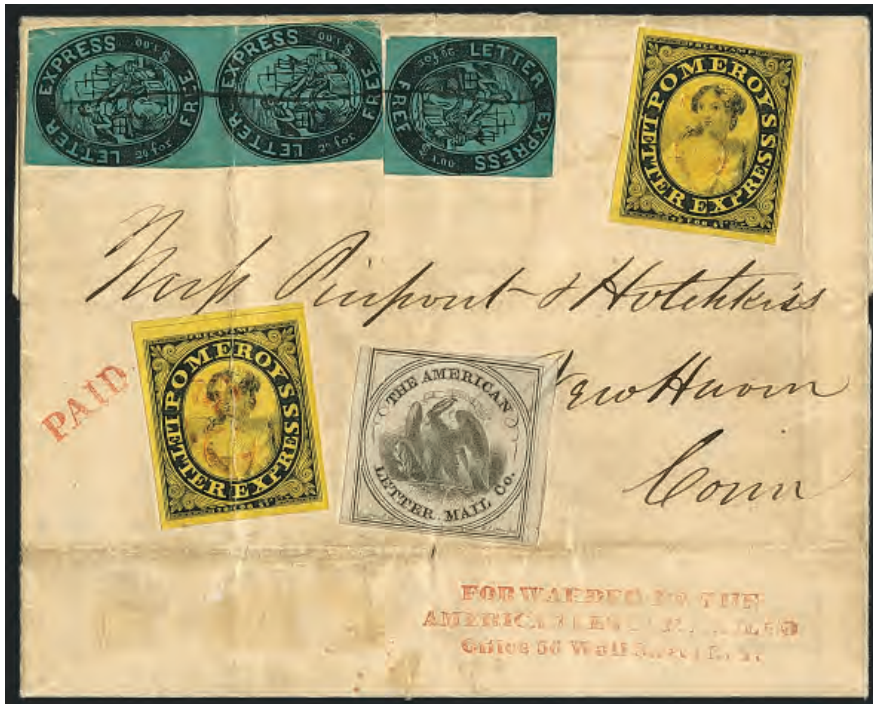 LETTER EXPRESS FREE $1.00
LETTER EXPRESS FREE $1.00
FREE LETTER EXPRESS $1.00
FREE STAMP
POMEROY'S
LETTER EXPRESS
Mess Pierpont & Hotchkiss
New Haven
Conn
PAID
FREE STAMP
POMEROY'S
LETTER EXPRESS
THE AMERICAN
LETTER MAIL Co.
FORWARDED BY THE
AMERICAN LETTER MAIL CO
Office 56 Wall Street N.Y.